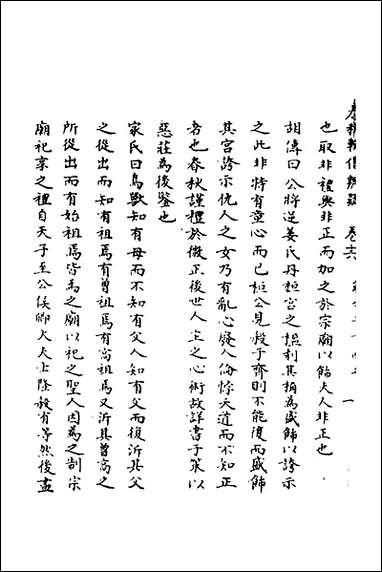 春秋諸傳辨疑 卷十六
也取非禮與非正而加之於宗廟以飾夫人非正也
胡傳曰公將逆姜氏丹桓宮之楹刻其桷為盛飾以誇示
之此非特有童心而已桓公見殺于齊則不能復而盛飾
其宮誇示仇人之女乃有亂心廢人倫悖天道而不知正
者也春秋謹禮於微正後世人主之心術故詳書于策以
惡莊為後鑒也
家氏曰鳥獸知有母而不知有父人知有父而復泝其父
之從出而知有祖焉有曾祖焉有高祖焉又泝其曾高之
所從出而有始祖焉皆為之廟以祀之聖人因為之制宗
廟祀享之禮自天子至公侯卿大夫士隆殺有等然後盡